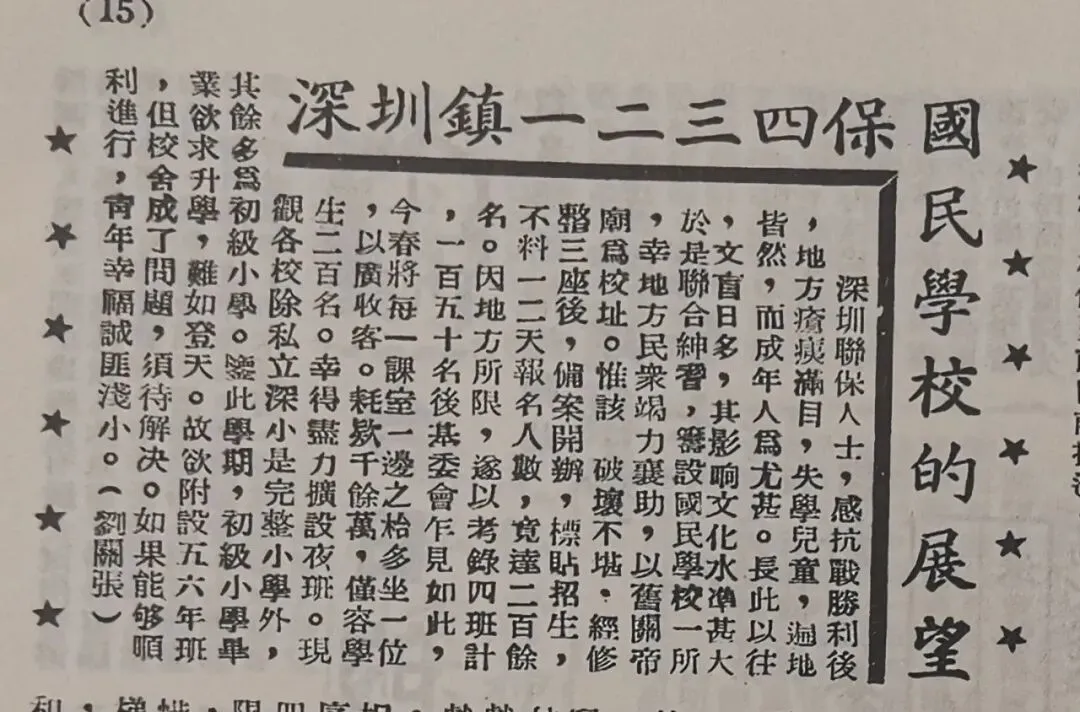 (15)
深圳鎮一二三四保
國民學校的展望
深圳聯保人士，感抗戰勝利後
，地方瘡痍滿目，失學兒童，遍地
皆然，而成年人爲尤甚。長此以往
，文盲日多，其影响文化水準甚大
於是聯合紳耆，籌設國民學校一所
，幸地方民衆竭力襄助，以舊關帝
廟爲校址。惟該　破壞不堪．經修
整三座後，備案開辦，標貼招生，
不料一二天報名人數，竟達二百餘
名。因地方所限，遂以考錄四班計
，一百五十名後基委會乍見如此，
今春將每一課室一邊之枱多坐一位
，以廣收客。耗欵千餘萬，僅容學
生二百名。幸得盡力擴設夜班。現
觀各校除私立深小是完整小學外，
其餘多爲初級小學。鑒此學期，初級小學畢
業欲求升學，難如登天。故欲附設五六年班
，但校舍成了問題，須待解决。如果能够順
利進行，青年幸福誠匪淺小。（劉關張）